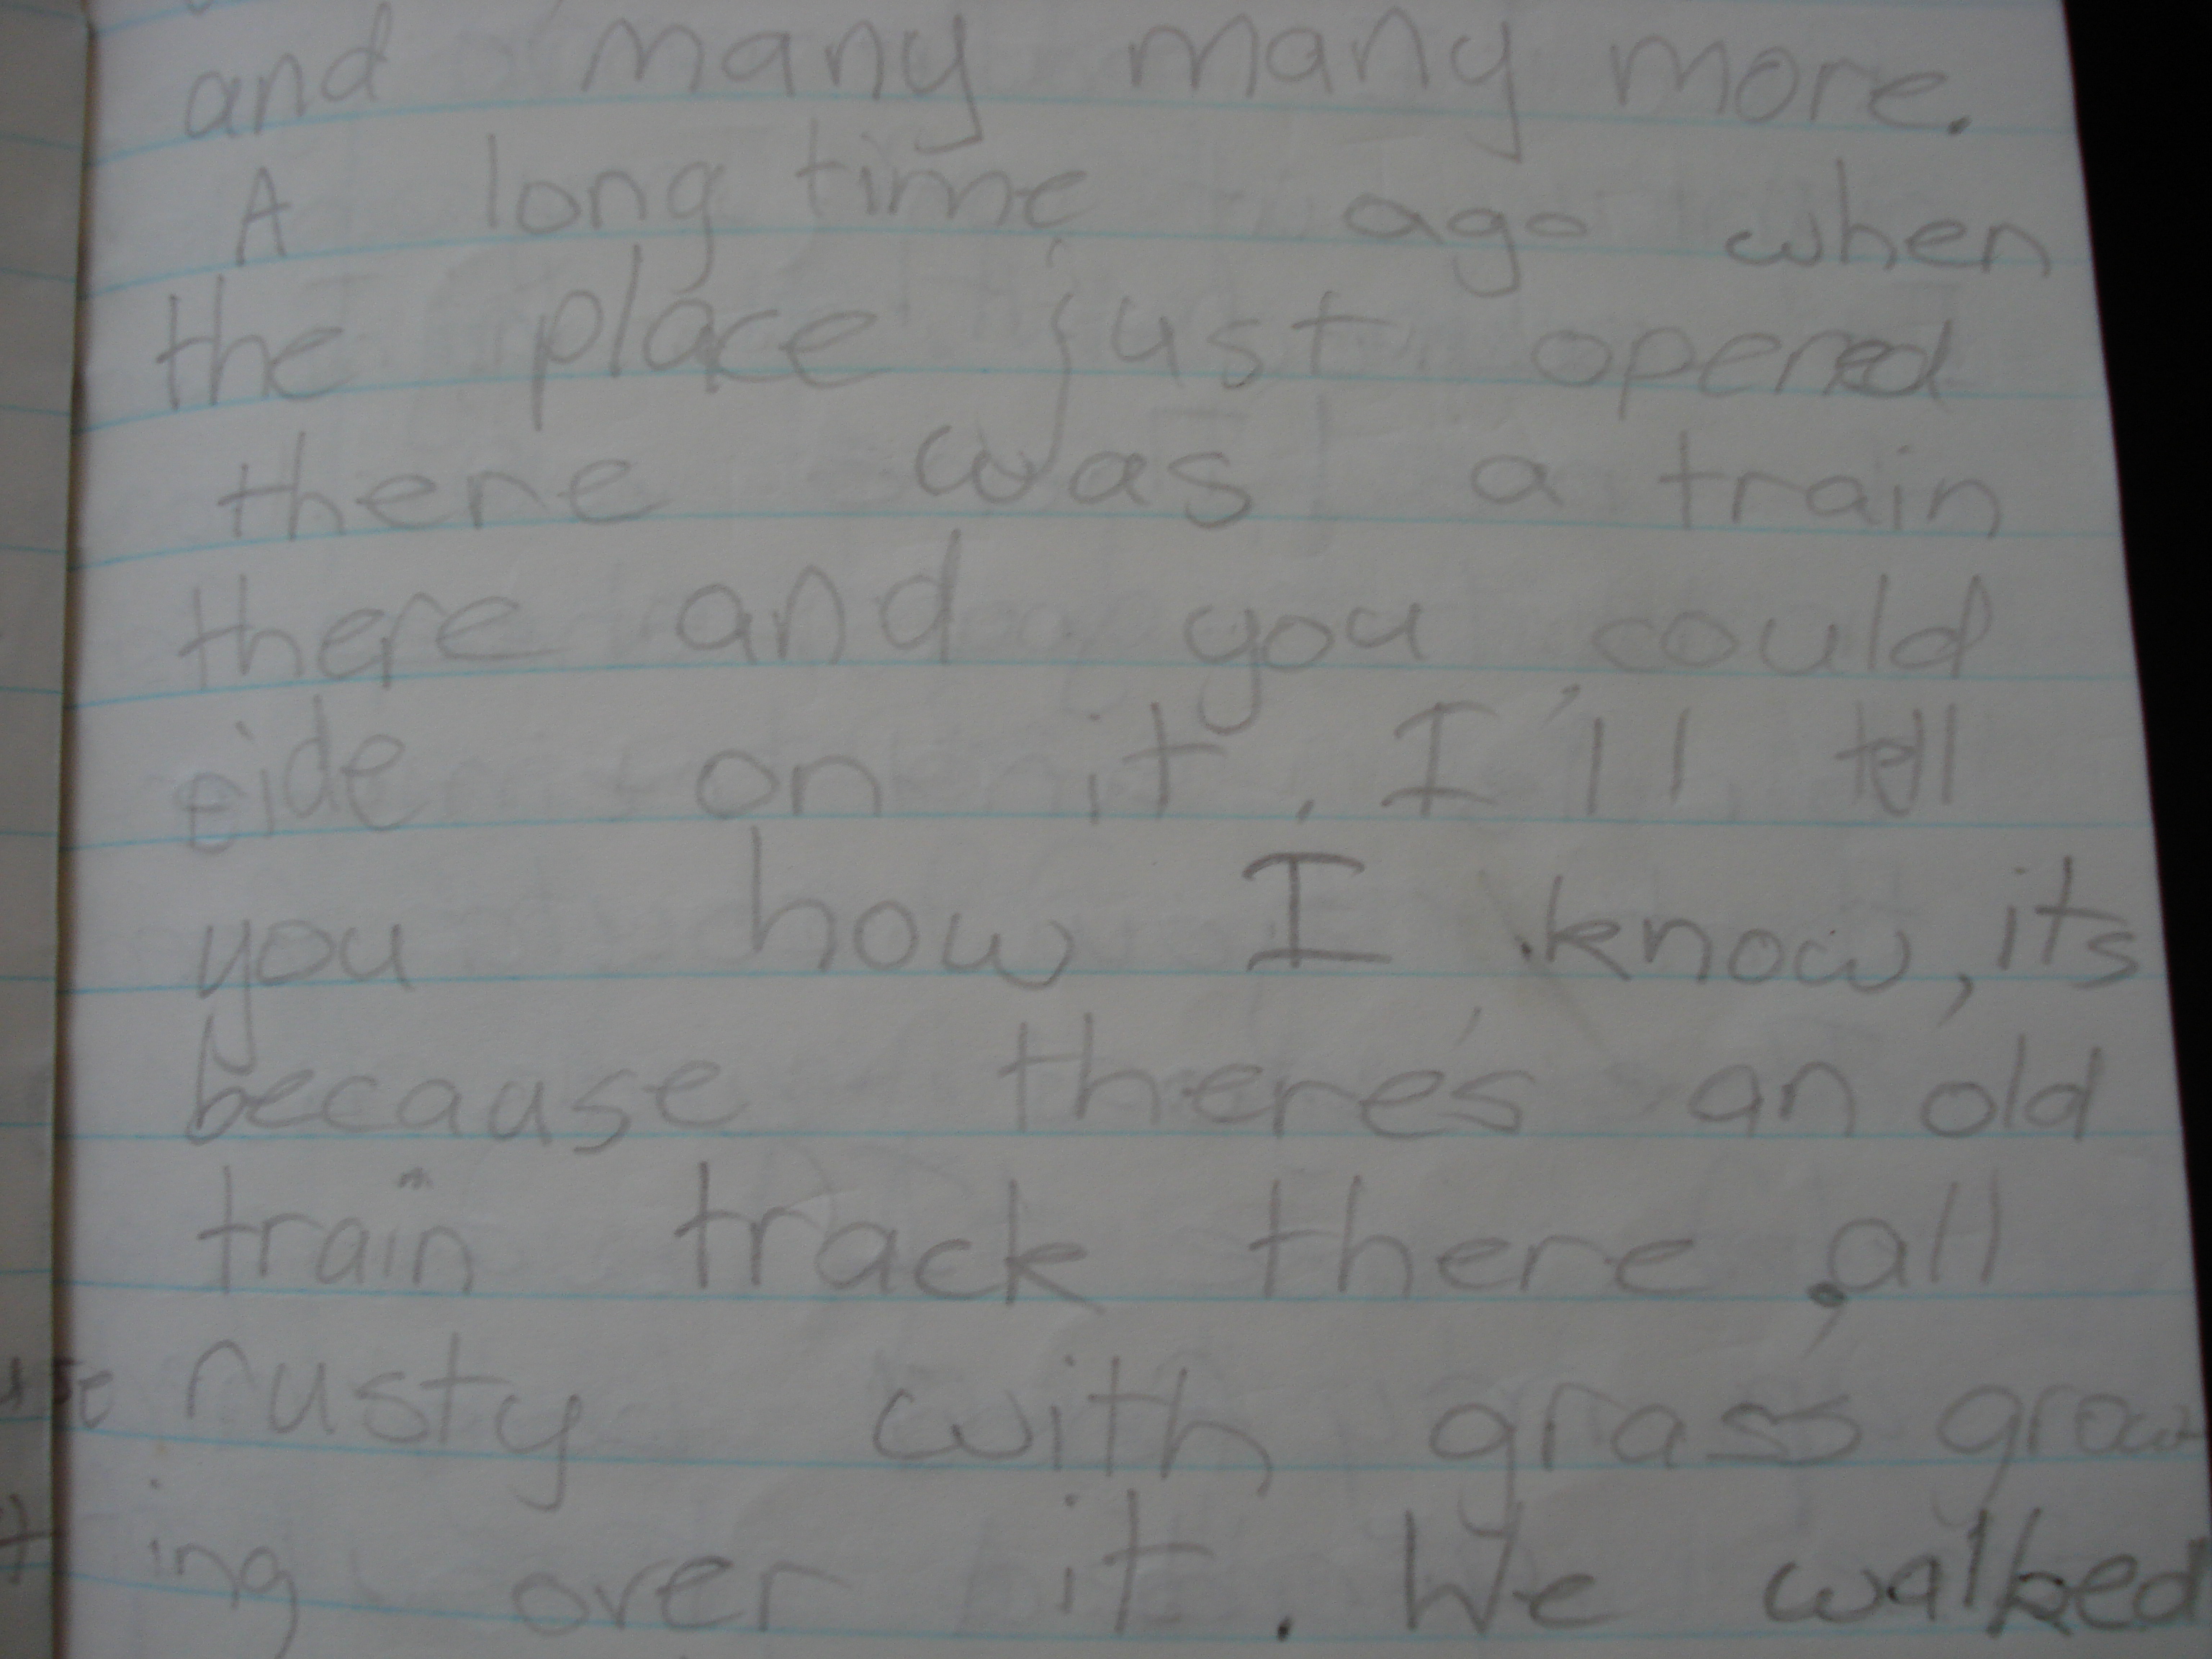 and many many more.
A long time ago when
the place just opened
there was a train
there and you could
ride on it. I'll tell
you how I know, its
because there's an old
train track there, all
rusty with grass grow
ing over it. We walked